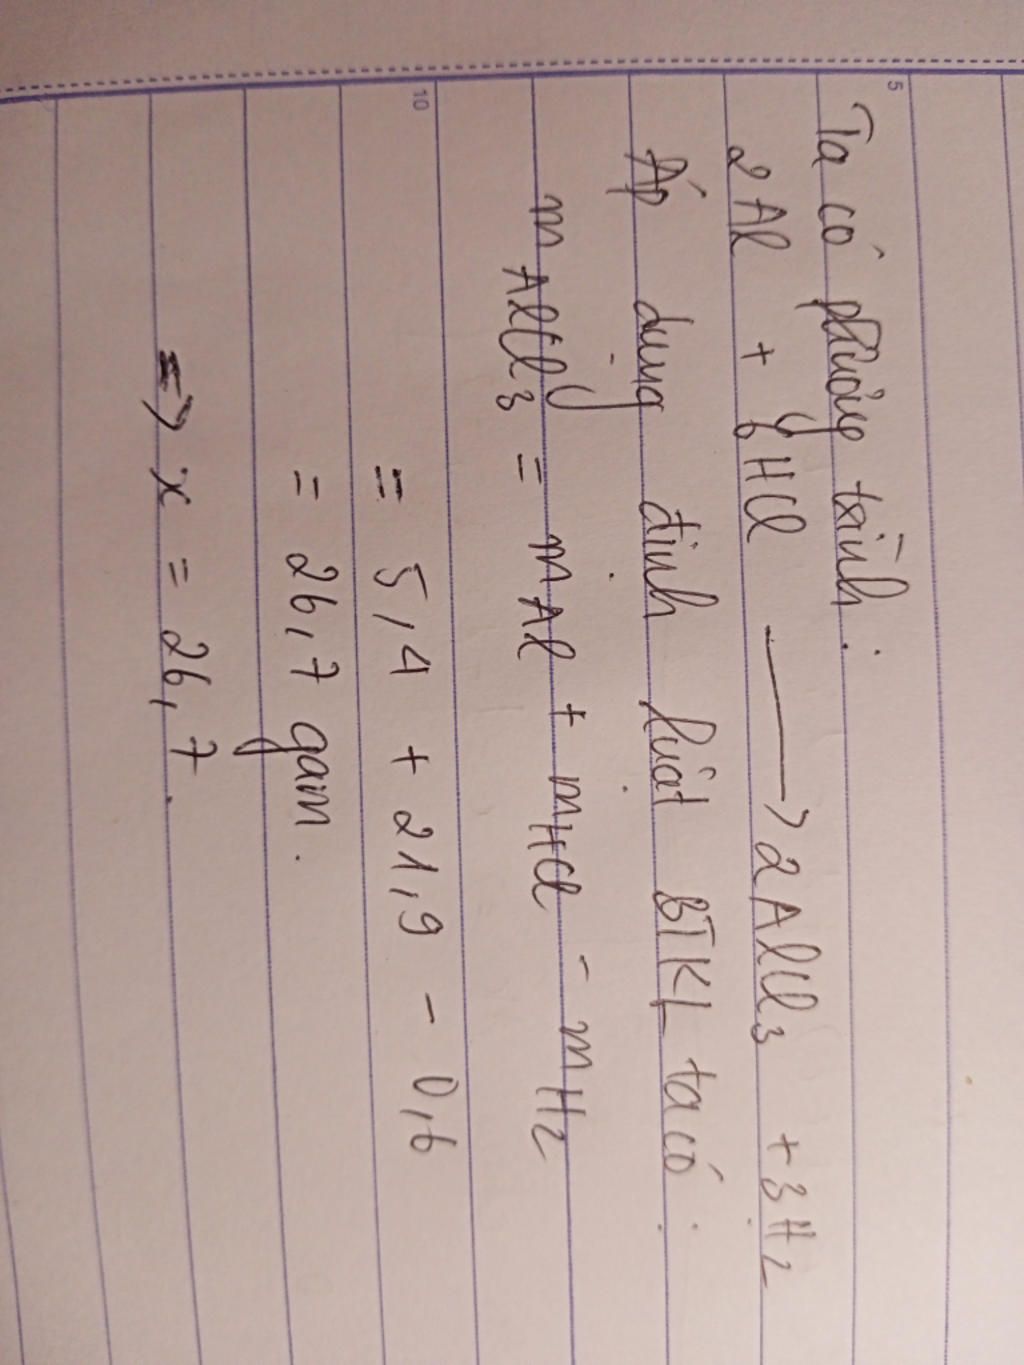 5
Ta có phương trình:
2Al + 6HCl → 2AlCl₃ + 3H₂
Áp dụng định luật BTKL ta có:
m AlCl₃ = m Al + m HCl - m H₂
10
= 5,4 + 21,9 - 0,6
= 26,7 gam.
=> x = 26,7.